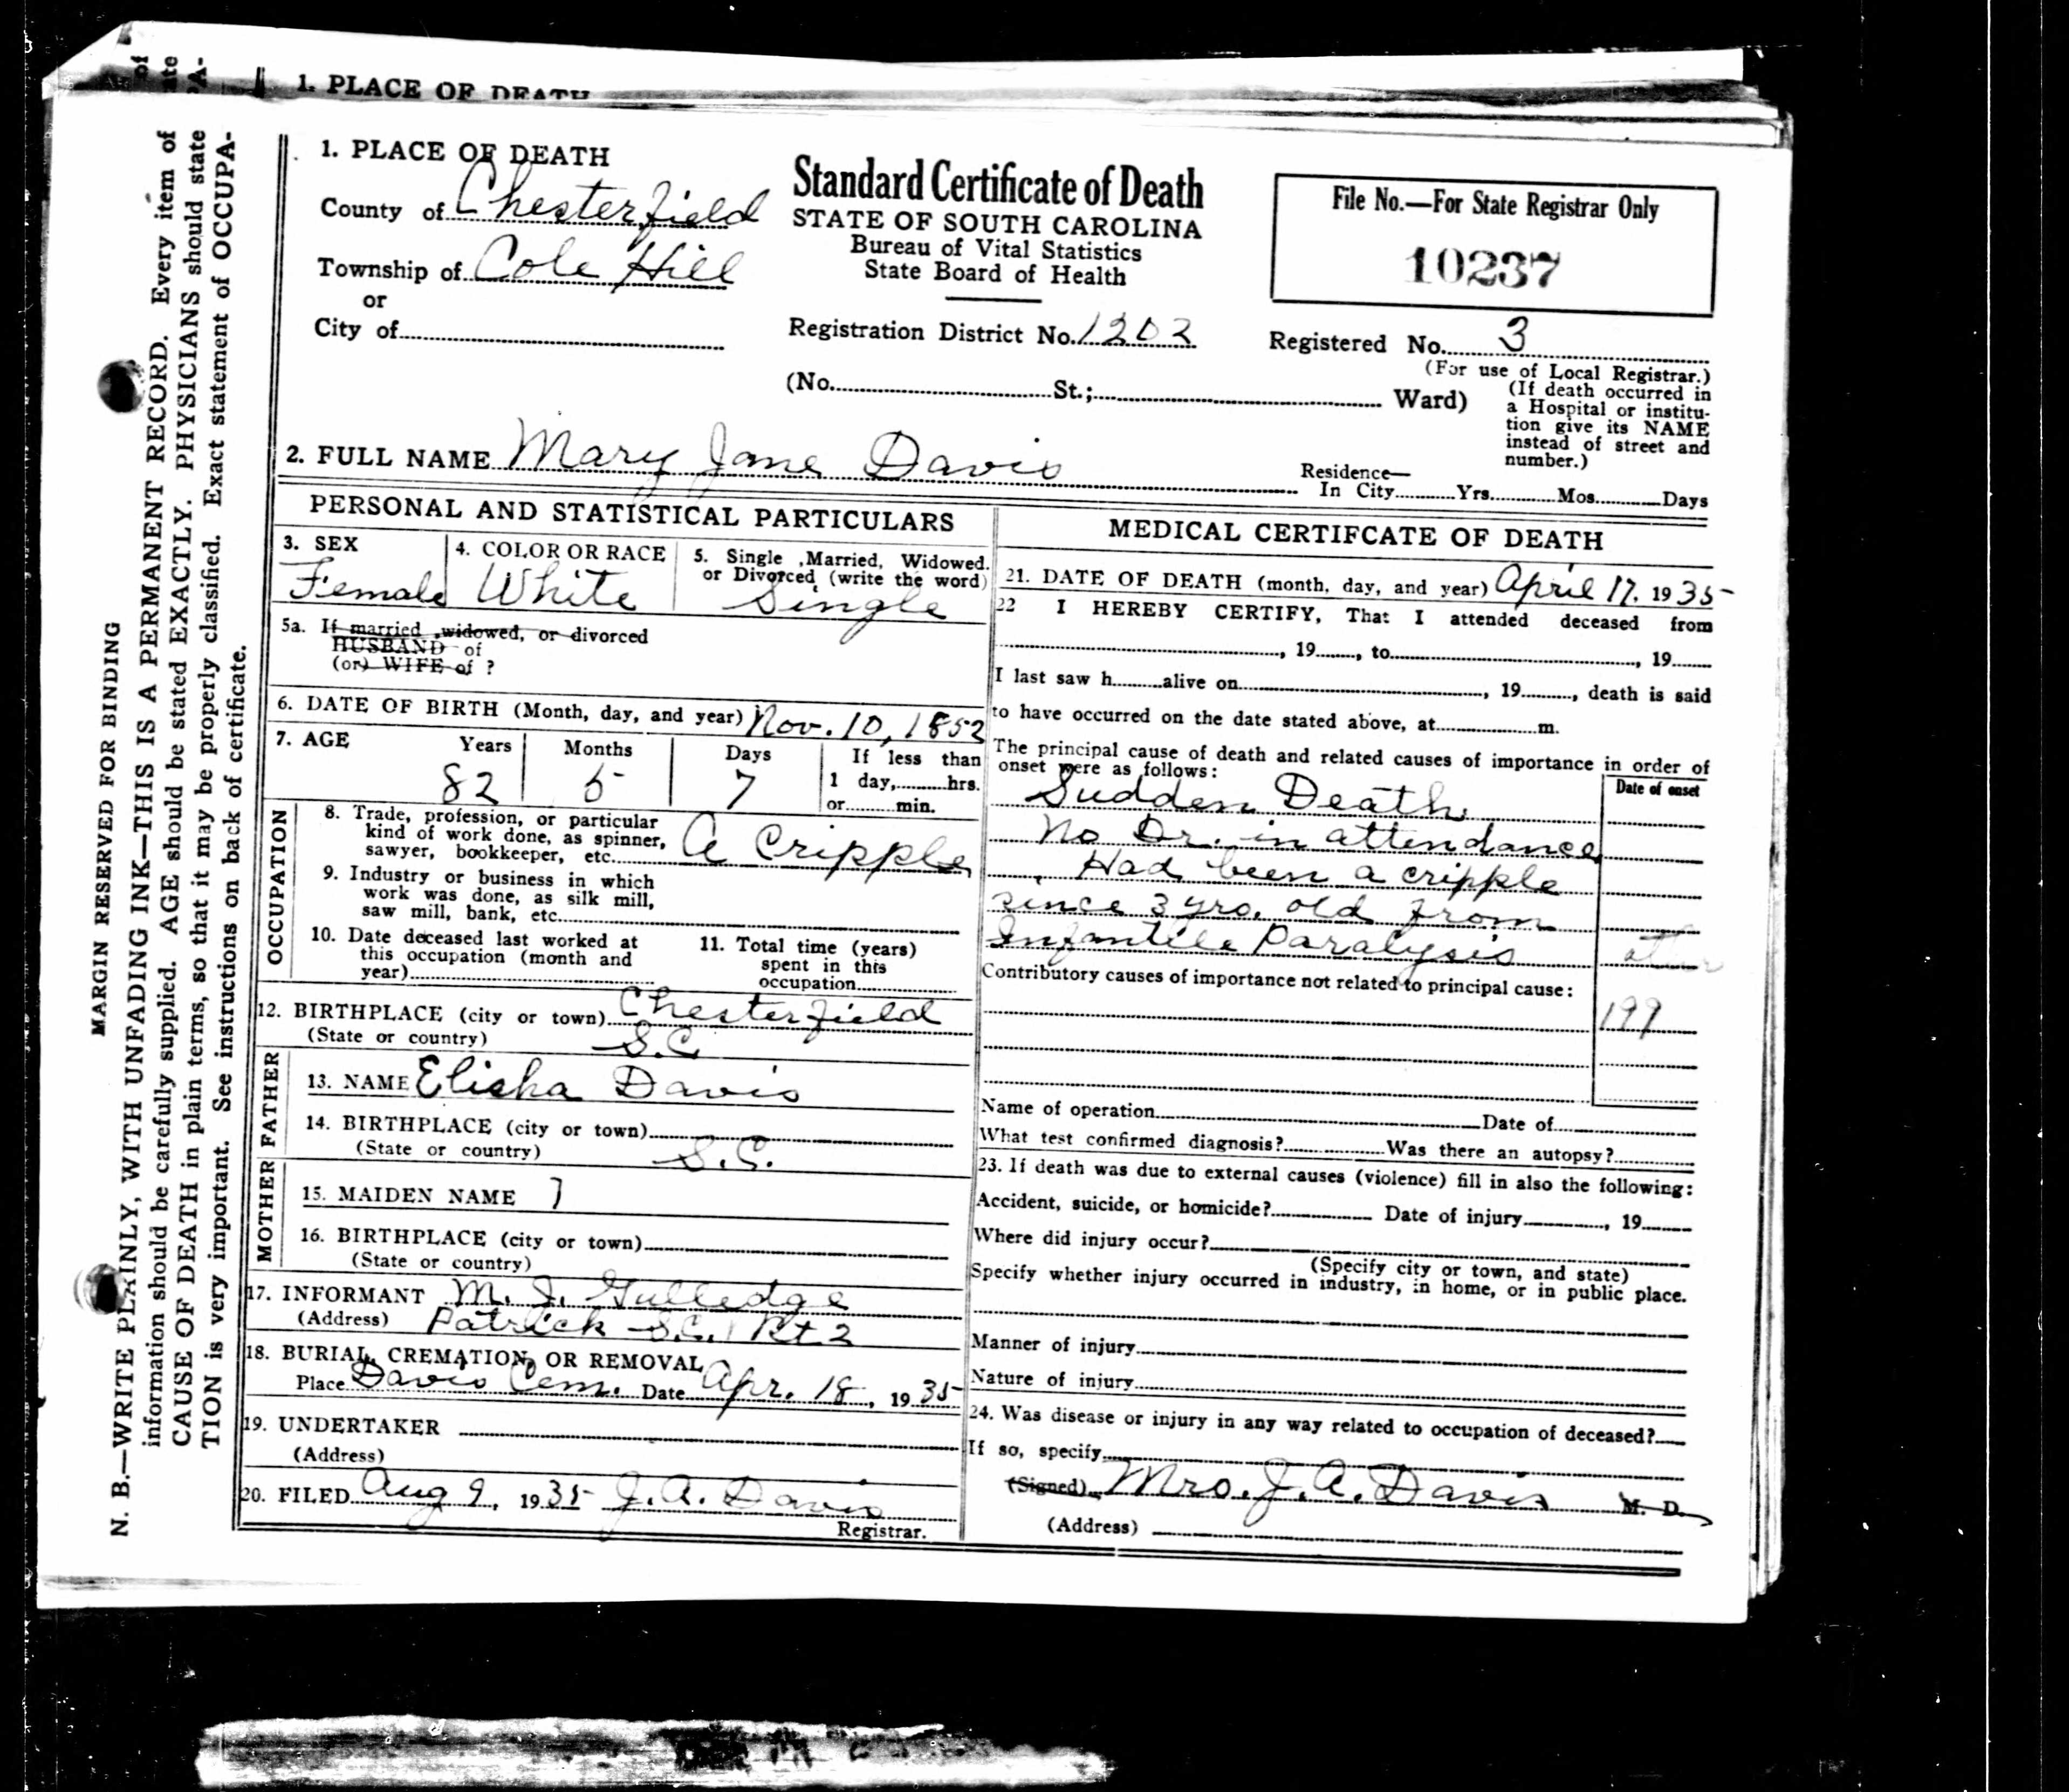 1. PLACE OF DEATH
1. PLACE OF DEATH
County of Chesterfield
Township of Cole Hill
or
City of
Standard Certificate of Death
STATE OF SOUTH CAROLINA
Bureau of Vital Statistics
State Board of Health
File No.—For State Registrar Only
10237
Registration District No. 1202
Registered No. 3
(For use of Local Registrar.)
(No. St.; Ward)
(If death occurred in
a Hospital or institu-
tion give its NAME
instead of street and
number.)
2. FULL NAME Mary Jane Davis
Residence—
In City Yrs. Mos. Days
PERSONAL AND STATISTICAL PARTICULARS
3. SEX
Female
4. COLOR OR RACE
White
5. Single ,Married, Widowed.
or Divorced (write the word)
Single
5a. If married ,widowed, or divorced
HUSBAND of
(or) WIFE of ?
6. DATE OF BIRTH (Month, day, and year) Nov. 10, 1852
7. AGE Years Months Days If less than
82 5 7 1 day, hrs.
or min.
OCCUPATION
8. Trade, profession, or particular
kind of work done, as spinner,
sawyer, bookkeeper, etc. A Cripple
9. Industry or business in which
work was done, as silk mill,
saw mill, bank, etc.
10. Date deceased last worked at
this occupation (month and
year)
11. Total time (years)
spent in this
occupation
12. BIRTHPLACE (city or town) Chesterfield
(State or country) S.C.
FATHER
13. NAME Elisha Davis
14. BIRTHPLACE (city or town)
(State or country) S.C.
MOTHER
15. MAIDEN NAME ?
16. BIRTHPLACE (city or town)
(State or country)
17. INFORMANT M. J. Gulledge
(Address) Patrick S.C. Rt 2
18. BURIAL, CREMATION, OR REMOVAL
Place Davis Cem. Date Apr. 18, 1935
19. UNDERTAKER
(Address)
20. FILED Aug 9, 1935 J. A. Davis
Registrar.
MEDICAL CERTIFCATE OF DEATH
21. DATE OF DEATH (month, day, and year) April 17. 1935
22 I HEREBY CERTIFY, That I attended deceased from
, 19 , to , 19
I last saw h alive on , 19 , death is said
to have occurred on the date stated above, at m.
The principal cause of death and related causes of importance in order of
onset were as follows:
Date of onset
Sudden Death
No Dr. in attendance
Had been a cripple
since 3 yrs. old from
Infantile Paralysis
Contributory causes of importance not related to principal cause:
199
Name of operation Date of
What test confirmed diagnosis? Was there an autopsy?
23. If death was due to external causes (violence) fill in also the following:
Accident, suicide, or homicide? Date of injury , 19
Where did injury occur?
(Specify city or town, and state)
Specify whether injury occurred in industry, in home, or in public place.
Manner of injury
Nature of injury
24. Was disease or injury in any way related to occupation of deceased?
If so, specify
(Signed) Mrs. J. A. Davis M. D.
(Address)
MARGIN RESERVED FOR BINDING
N. B.—WRITE PLAINLY, WITH UNFADING INK—THIS IS A PERMANENT RECORD. Every item of
information should be carefully supplied. AGE should be stated EXACTLY. PHYSICIANS should state
CAUSE OF DEATH in plain terms, so that it may be properly classified. Exact statement of OCCUPA-
TION is very important. See instructions on back of certificate.